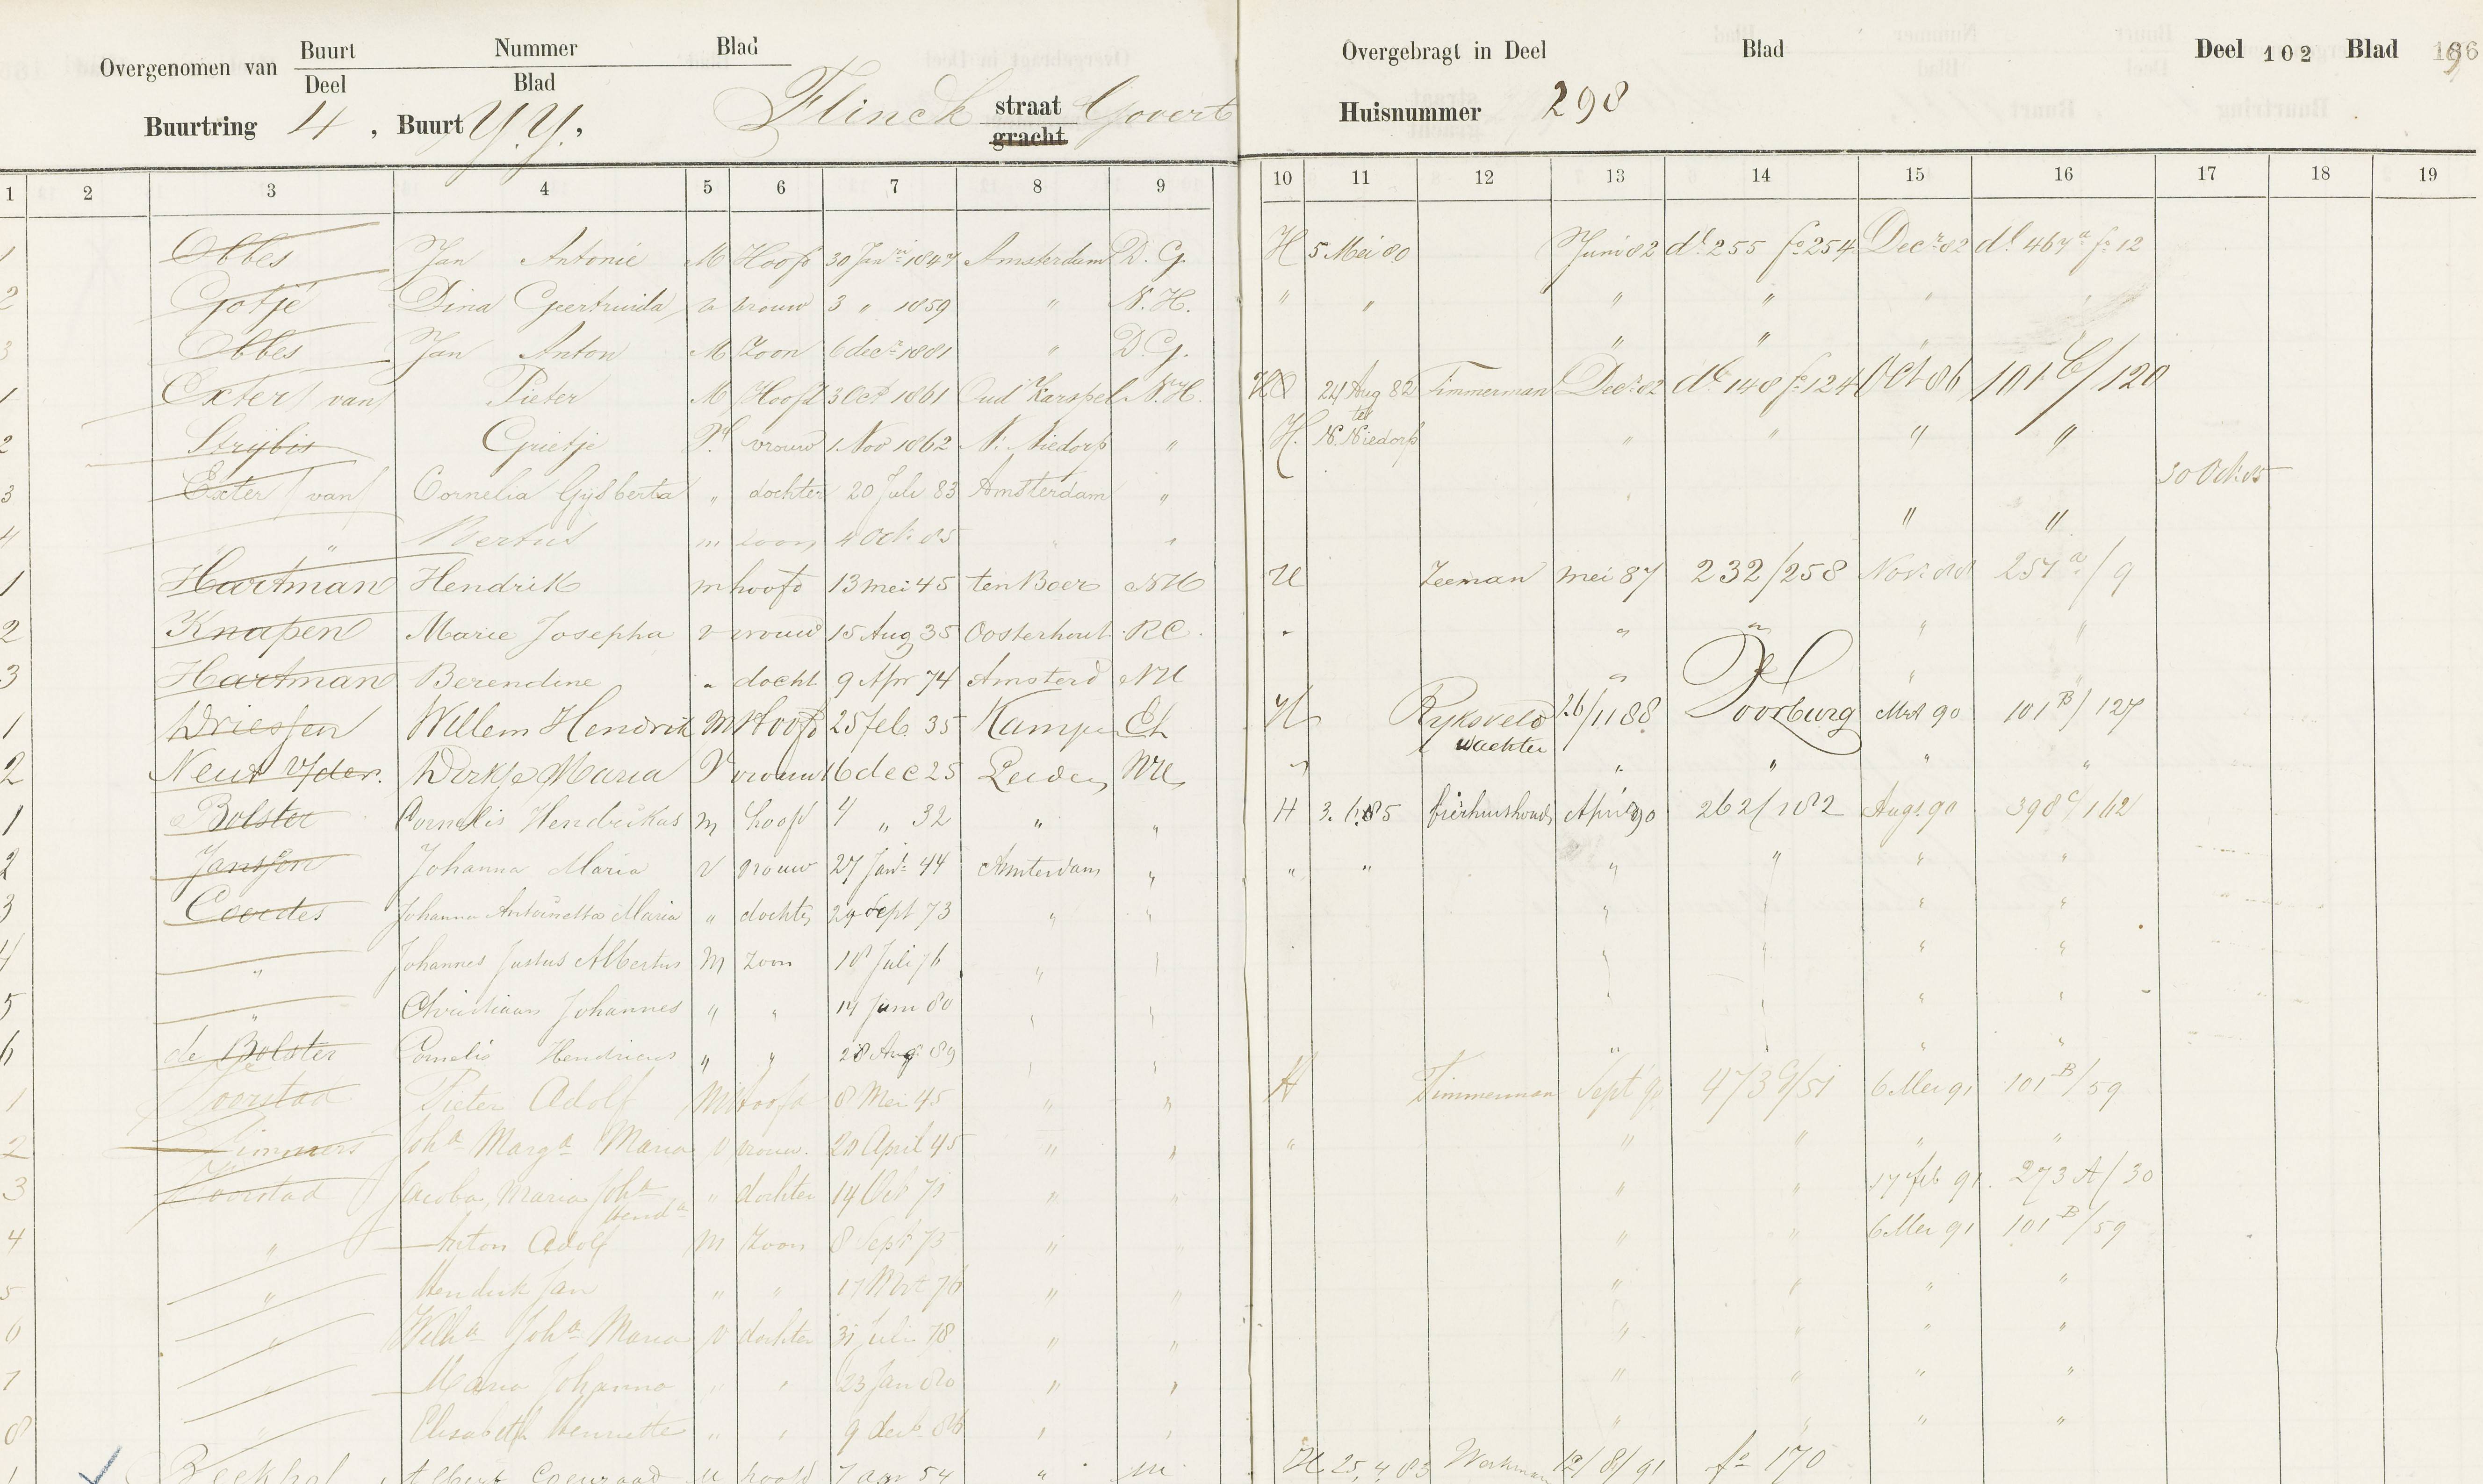 Overgenomen van Buurt Nummer Blad
Deel Blad
Buurtring 4, Buurt Y.Y. Flinck straat Govert
gracht
Overgebragt in Deel Blad Deel 102 Blad
Huisnummer 298
1 2 3 4 5 6 7 8 9 10 11 12 13 14 15 16 17 18 19
1 Obbes Jan Antonie M Hoofd 30 Janri 1847 Amsterdam D.G. H 5 Mei 80 Juni 82 dl 255 fo 254 Decr 82 dl 467a fo 12
2 Gotjé Dina Geertruida v vrouw 3 " 1859 " N.H. " " " " " "
3 Obbes Jan Anton M Zoon 6 decr 1881 " D.G. " "
1 Exter van Pieter M Hoofd 3 Oct 1861 Oud Karspel N.H. 24 Aug 82 Timmerman Decr 82 dl 148 fo 124 Oct 86 101C/120
2 Strijbis Grietje V. vrouw 1 Nov 1862 N. Niedorp " H. te N. Niedorp " " " "
3 Exter van Cornelia Gijsberta " dochter 20 Juli 83 Amsterdam "
4 " Bertus m zoon 4 Oct 85 " " " " 30 Oct 85
1 Hartman Hendrik m hoofd 13 mei 45 ten Boer NH H Zeeman mei 87 232/258 Nov. 88 257a/9
2 Knapen Marie Josepha v vrouw 15 Aug 35 Oosterhout RC. " " " " "
3 Hartman Berendine " docht 9 Apr 74 Amsterd NH " "
1 Driessen Willem Hendrik M Hoofd 25 feb. 35 Kampen H Ryksveld wachter 26/11 88 Voorburg Mrt 90 101B/127
2 Neut v/der. Dirkje Maria V vrouw 16 dec 25 Leiden NH " " " " "
1 Bolster Cornelis Hendrikus m hoofd 4 " 32 " " H bierhuishoud April 90 262/182 Augs 90 398c/162
2 Janssen Johanna Maria v vrouw 27 Jan. 44 Amsterdam " " " " " " "
3 Coerdes Johanna Antoinetta Maria " dochter 24 Sept 73 " " " " "
4 " Johannes Justus Albertus M Zoon 18 Juli 76 " " " "
5 " Christiaan Johannes " " 14 Juni 80 " "
6 de Bolster Cornelis Hendricus " " 28 Aug 89 " "
1 Voorstad Pieter Adolf M Hoofd 8 Mei 45 " " H Timmerman Sept 90 473c/51 6 Mei 91 101B/59
2 Timmers Joha Marga Maria v vrouw. 20 April 45 " " " " " " "
3 Voorstad Jacoba, Maria Joha Henda " dochter 14 Oct 71 " " " " 17 feb 91. 273 A/30
4 " Anton Adolf M Zoon 8 Sept 75 " " " 6 Mei 91 101B/59
5 " Hendrik Jan " " 17 Mrt 76 " " " " " "
6 " Wilha Joha Maria v dochter 31 Juli 78 " " " " " "
7 Maria Johanna " " 23 Jan 80 " " " " " "
8 " Elisabeth Henriette " " 9 dec. 86 " " " " " "
1 Albert Coenraad M hoofd 7 apr 54 " H 25.4.83 Werkman 12/8/91 fo 170